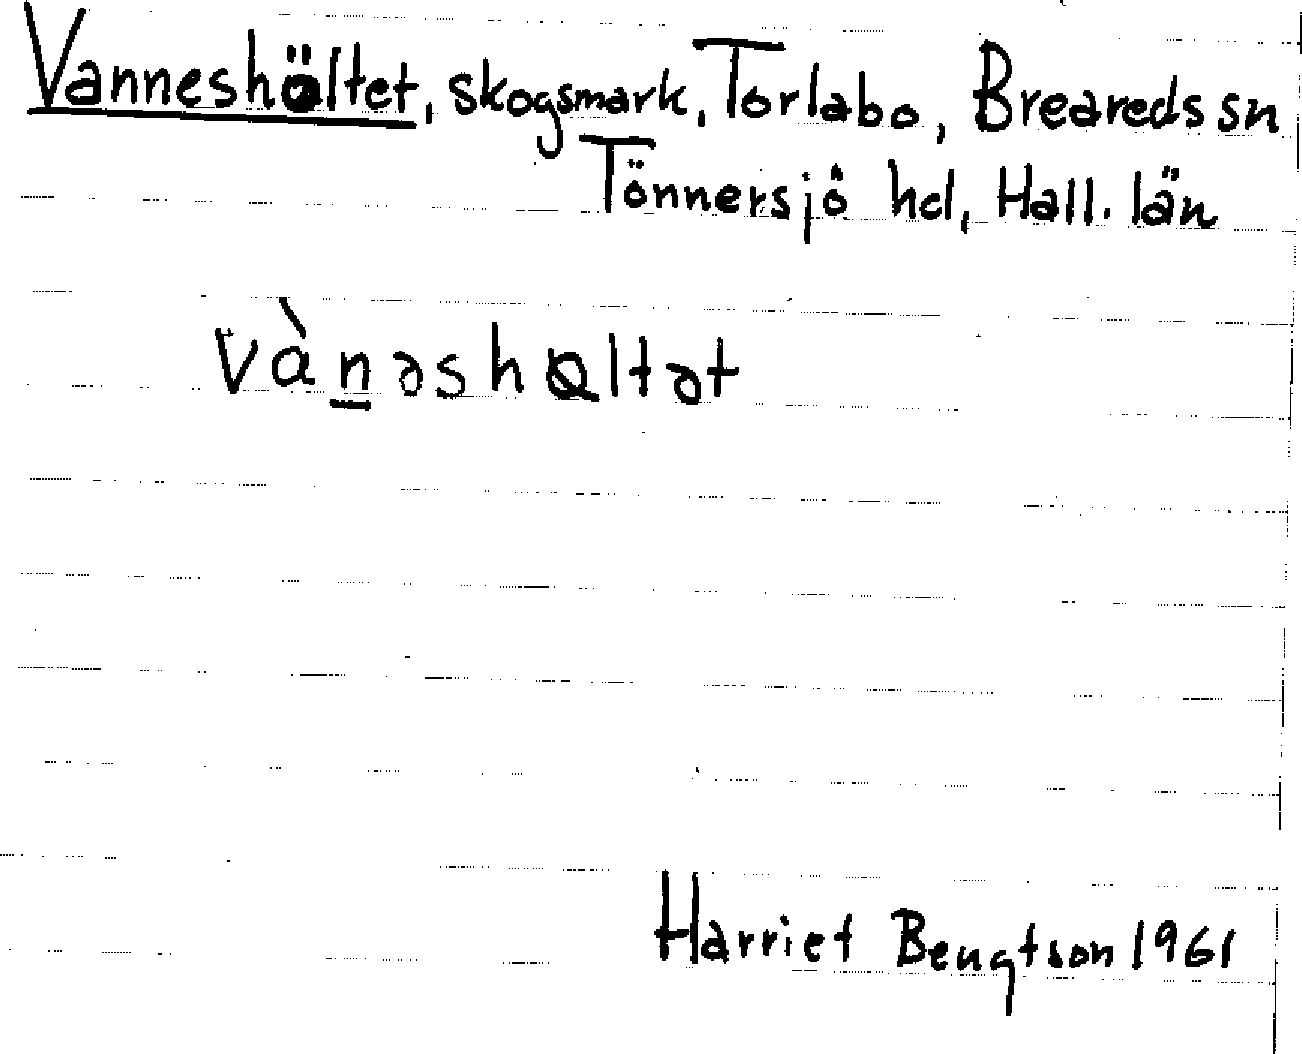 Vanneshöltet, skogsmark, Torlabo, Breareds sn
Tönnersjö hd, Hall. län
vàn̲əshɷltət
Harriet Bengtson 1961